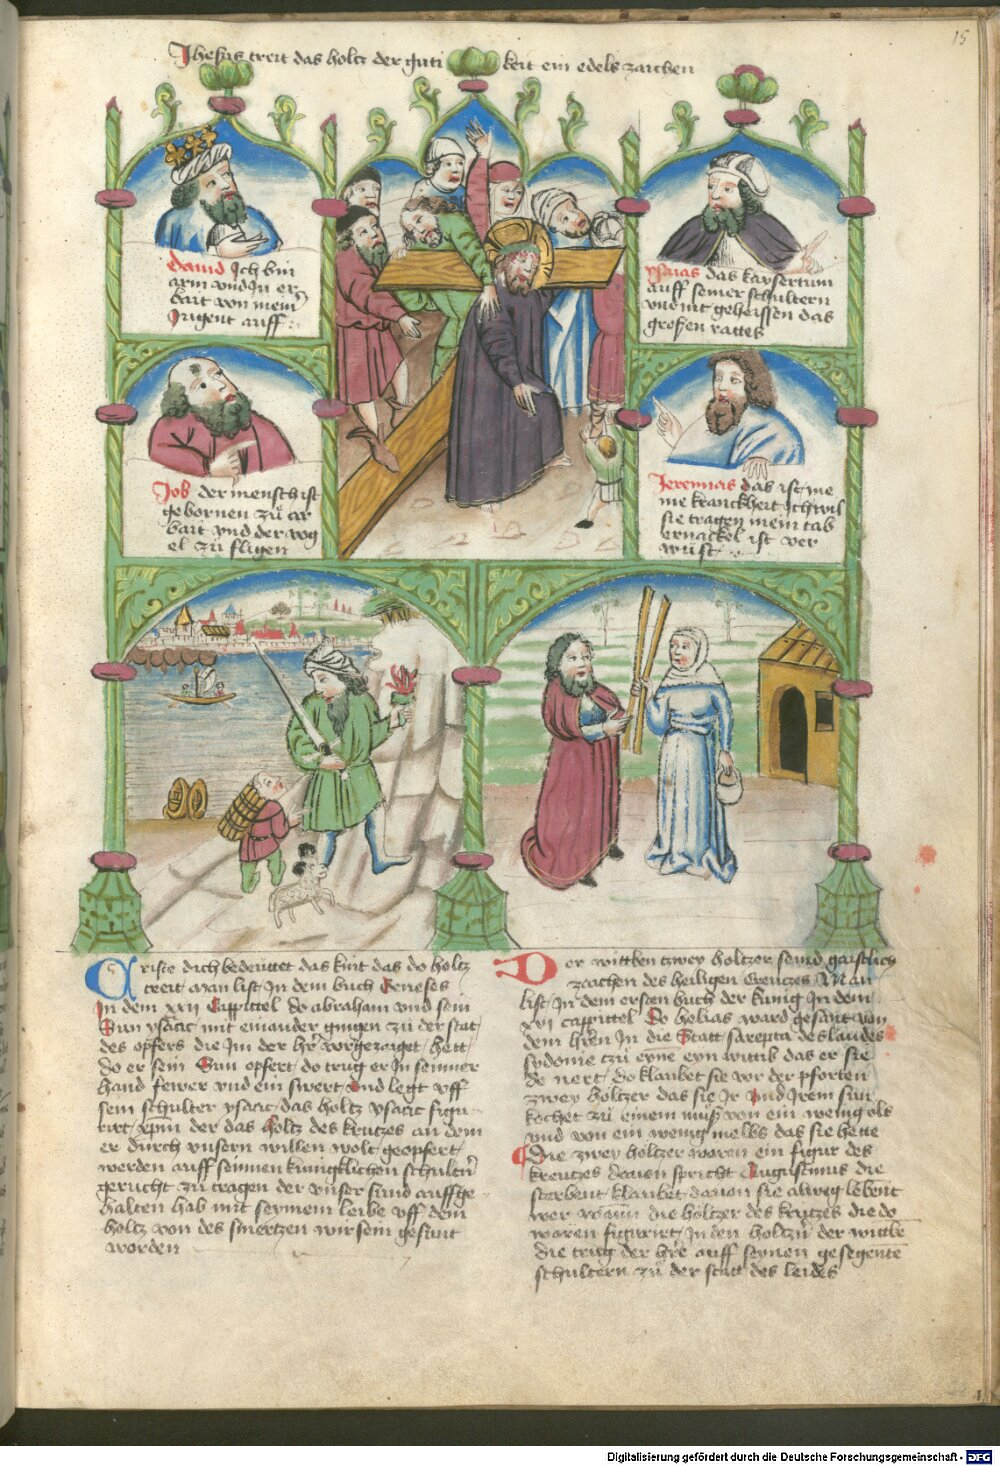 15
Jhesus treit das holtz der guti keit ein edels zaichen
dauid Jch bin
arm vnd in er
bait von meiner
Jugent auff
ysaias das kaysertum
auff seiner schultern
vnd ist geheissen das
großen rattes
Job der mensch ist
gebornen zů ar
bait vnd der vog
el zů fligen
Jeremias das ist me
ine kranckheit Jch wil
sie tragen mein tab
ernackel ist ver
wůst
Criste dich bedeuttet das kint das do holtz
treit Man list Jn dem buch Geneses
Jn dem xxij Cappittel do abraham vnd sein
Sun ysaac mit einander gingen zů der stat
des opfers die Jm der hr̄ vorgezaiget hett
do er sein Sun opfert do trug er Jn seinner
hand fewer vnd ein swert vnd legt vff
sein schulter ysaac das holtz ysaac figu
rirt xp̄m der das holtz des krutzes an dem
er durch vnsern willen wolt geopfert
werden auff seinnen kunigklichen schultn̄
gerucht zů tragen der vnser sund auffge
halten hab mit seynem leibe vff dem
holtz von des smertzen wir sein gesunt
worden
Der wittben zwey holtzer seind gaistlich
zaichen des heiligen Creuczes Man
list Jn dem ersten buch der kunig Jn dem
xvij cappittel So helias ward gesant von
dem hr̄en Jn die Statt sarepta des landes
sydonie tzů eyne eyn wittib das er sie
de nert do klaubet sie vor der pforten
zwey holtzer das sie Jr vnd Jrem sun
kochet zů einem můß von ein wenig ols
vnd von ein wenig melbs das sie hette
Die zwey holtzer woren ein figur des
kreutzes dauon spricht Augustinus die
sterbent klaubet dauon sie alweg lebent
wer die holtzer des krutzes die do
woren figurirt Jn den holtzn̄ der wittbē
die trug der hr̄e auff seynen gesegentē
schultern zů der statt des leides
Digitalisierung gefördert durch die Deutsche Forschungsgemeinschaft - DFG